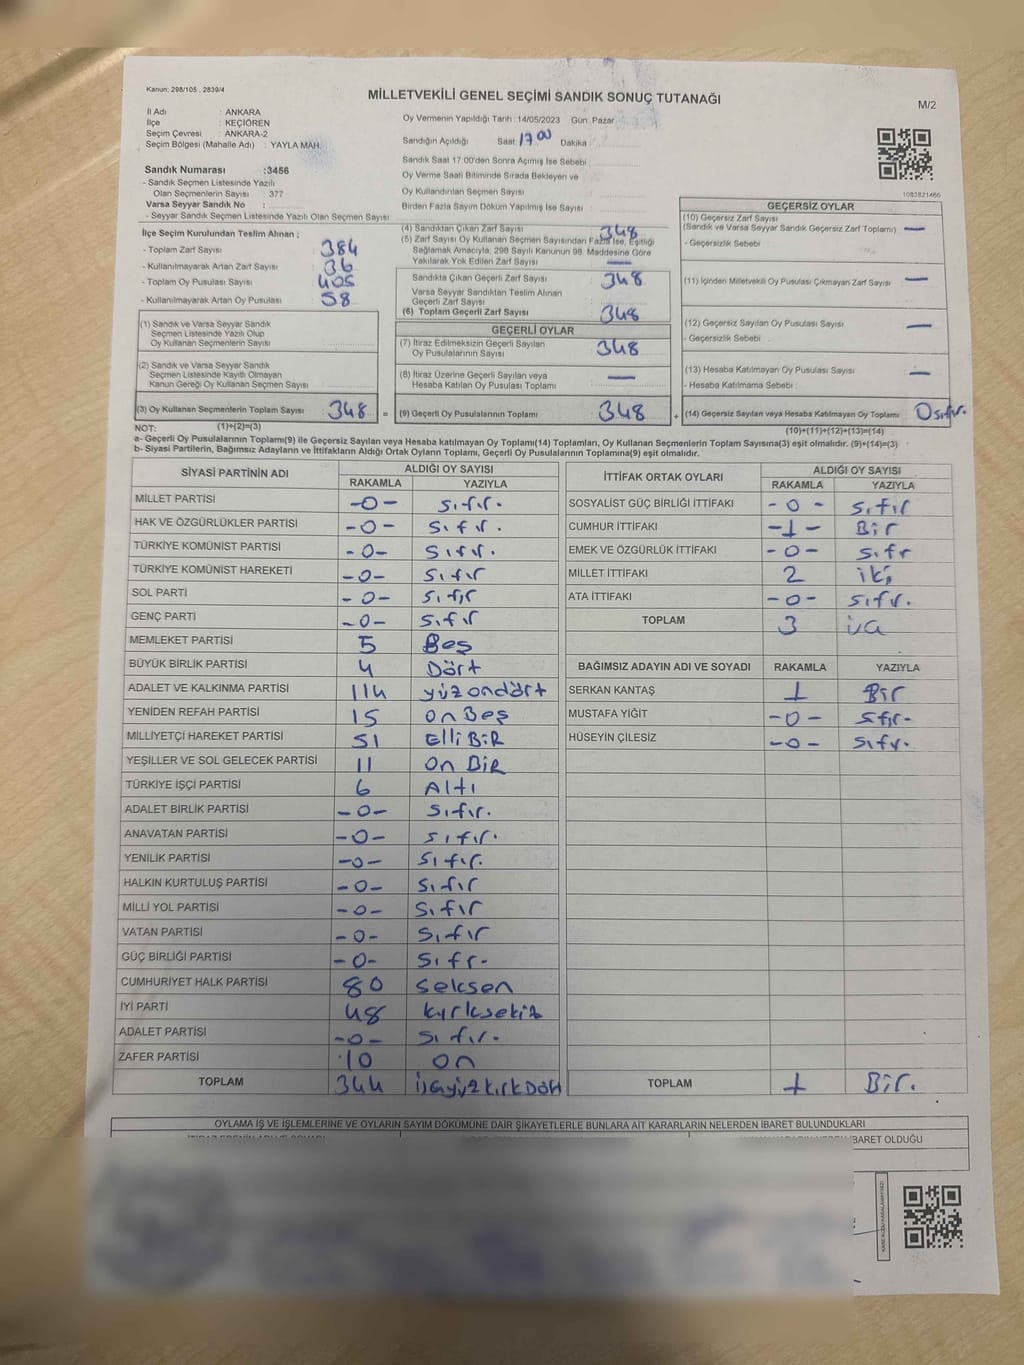 Kanun: 298/105 , 2839/4
MİLLETVEKİLİ GENEL SEÇİMİ SANDIK SONUÇ TUTANAĞI
M/2
İl Adı : ANKARA
İlçe : KEÇİÖREN
Seçim Çevresi : ANKARA-2
Seçim Bölgesi (Mahalle Adı) : YAYLA MAH.
Oy Vermenin Yapıldığı Tarih : 14/05/2023 Gün : Pazar
Sandığın Açıldığı Saat: 17 00 Dakika :
Sandık Saat 17:00'den Sonra Açımış İse Sebebi :
Oy Verme Saati Bitiminde Sırada Bekleyen ve
Oy Kullandırılan Seçmen Sayısı
Birden Fazla Sayım Döküm Yapılmış İse Sayısı :
1083821466
Sandık Numarası :3456
- Sandık Seçmen Listesinde Yazılı
Olan Seçmenlerin Sayısı : 377
Varsa Seyyar Sandık No :
- Seyyar Sandık Seçmen Listesinde Yazılı Olan Seçmen Sayısı :
İlçe Seçim Kurulundan Teslim Alınan ;
- Toplam Zarf Sayısı : 384
- Kullanılmayarak Artan Zarf Sayısı : 36
- Toplam Oy Pusulası Sayısı : 405
- Kullanılmayarak Artan Oy Pusulası : 58
(1) Sandık ve Varsa Seyyar Sandık
Seçmen Listesinde Yazılı Olup
Oy Kullanan Seçmenlerin Sayısı :
(2) Sandık ve Varsa Seyyar Sandık
Seçmen Listesinde Kayıtlı Olmayan
Kanun Gereği Oy Kullanan Seçmen Sayısı :
(3) Oy Kullanan Seçmenlerin Toplam Sayısı 348 =
(1)+(2)=(3)
(4) Sandıktan Çıkan Zarf Sayısı 348
(5) Zarf Sayısı Oy Kullanan Seçmen Sayısından Fazla İse, Eşitliği
Sağlamak Amacıyla, 298 Sayılı Kanunun 98. Maddesine Göre
Yakılarak Yok Edilen Zarf Sayısı : —
Sandıkta Çıkan Geçerli Zarf Sayısı : 348
Varsa Seyyar Sandıktan Teslim Alınan
Geçerli Zarf Sayısı :
(6) Toplam Geçerli Zarf Sayısı : 348
GEÇERLİ OYLAR
(7) İtiraz Edilmeksizin Geçerli Sayılan
Oy Pusulalarının Sayısı : 348
(8) İtiraz Üzerine Geçerli Sayılan veya
Hesaba Katılan Oy Pusulası Toplamı : —
(9) Geçerli Oy Pusulalarının Toplamı : 348 +
GEÇERSİZ OYLAR
(10) Geçersiz Zarf Sayısı
(Sandık ve Varsa Seyyar Sandık Geçersiz Zarf Toplamı) : —
- Geçersizlik Sebebi :
(11) İçinden Milletvekili Oy Pusulası Çıkmayan Zarf Sayısı : —
(12) Geçersiz Sayılan Oy Pusulası Sayısı : —
- Geçersizlik Sebebi :
(13) Hesaba Katılmayan Oy Pusulası Sayısı : —
- Hesaba Katılmama Sebebi :
(14) Geçersiz Sayılan veya Hesaba Katılmayan Oy Toplamı : 0 sıfır.
(10)+(11)+(12)+(13)=(14)
NOT:
a- Geçerli Oy Pusulalarının Toplamı(9) ile Geçersiz Sayılan veya Hesaba katılmayan Oy Toplamı(14) Toplamları, Oy Kullanan Seçmenlerin Toplam Sayısına(3) eşit olmalıdır. (9)+(14)=(3)
b- Siyasi Partilerin, Bağımsız Adayların ve İttifakların Aldığı Ortak Oyların Toplamı, Geçerli Oy Pusulalarının Toplamına(9) eşit olmalıdır.
SİYASİ PARTİNİN ADI ALDIĞI OY SAYISI
RAKAMLA YAZIYLA
MİLLET PARTİSİ -0- sıfır.
HAK VE ÖZGÜRLÜKLER PARTİSİ -0- sıfır.
TÜRKİYE KOMÜNİST PARTİSİ -0- sıfır.
TÜRKİYE KOMÜNİST HAREKETİ -0- sıfır
SOL PARTİ -0- sıfır
GENÇ PARTİ -0- sıfır
MEMLEKET PARTİSİ 5 Beş
BÜYÜK BİRLİK PARTİSİ 4 Dört
ADALET VE KALKINMA PARTİSİ 114 yüzondört
YENİDEN REFAH PARTİSİ 15 onBeş
MİLLİYETÇİ HAREKET PARTİSİ 51 ElliBiR
YEŞİLLER VE SOL GELECEK PARTİSİ 11 on BiR
TÜRKİYE İŞÇİ PARTİSİ 6 Altı
ADALET BİRLİK PARTİSİ -0- sıfır.
ANAVATAN PARTİSİ -0- sıfır.
YENİLİK PARTİSİ -0- sıfır.
HALKIN KURTULUŞ PARTİSİ -0- sıfır
MİLLİ YOL PARTİSİ -0- sıfır
VATAN PARTİSİ -0- sıfır
GÜÇ BİRLİĞİ PARTİSİ -0- sıfr.
CUMHURİYET HALK PARTİSİ 80 seksen
İYİ PARTİ 48 kırksekiz
ADALET PARTİSİ -0- sıfır.
ZAFER PARTİSİ 10 on
TOPLAM 344 üçyüzkırkDört
İTTİFAK ORTAK OYLARI ALDIĞI OY SAYISI
RAKAMLA YAZIYLA
SOSYALİST GÜÇ BİRLİĞİ İTTİFAKI -0- sıfır
CUMHUR İTTİFAKI -1- Bir
EMEK VE ÖZGÜRLÜK İTTİFAKI -0- sıfr
MİLLET İTTİFAKI 2 iki
ATA İTTİFAKI -0- sıfır.
TOPLAM 3 üç
BAĞIMSIZ ADAYIN ADI VE SOYADI RAKAMLA YAZIYLA
SERKAN KANTAŞ 1 Bir
MUSTAFA YİĞİT -0- sfır.
HÜSEYİN ÇİLESİZ -0- sıfır.
TOPLAM 1 Bir.
OYLAMA İŞ VE İŞLEMLERİNE VE OYLARIN SAYIM DÖKÜMÜNE DAİR ŞİKAYETLERLE BUNLARA AİT KARARLARIN NELERDEN İBARET BULUNDUKLARI
İBARET OLDUĞU